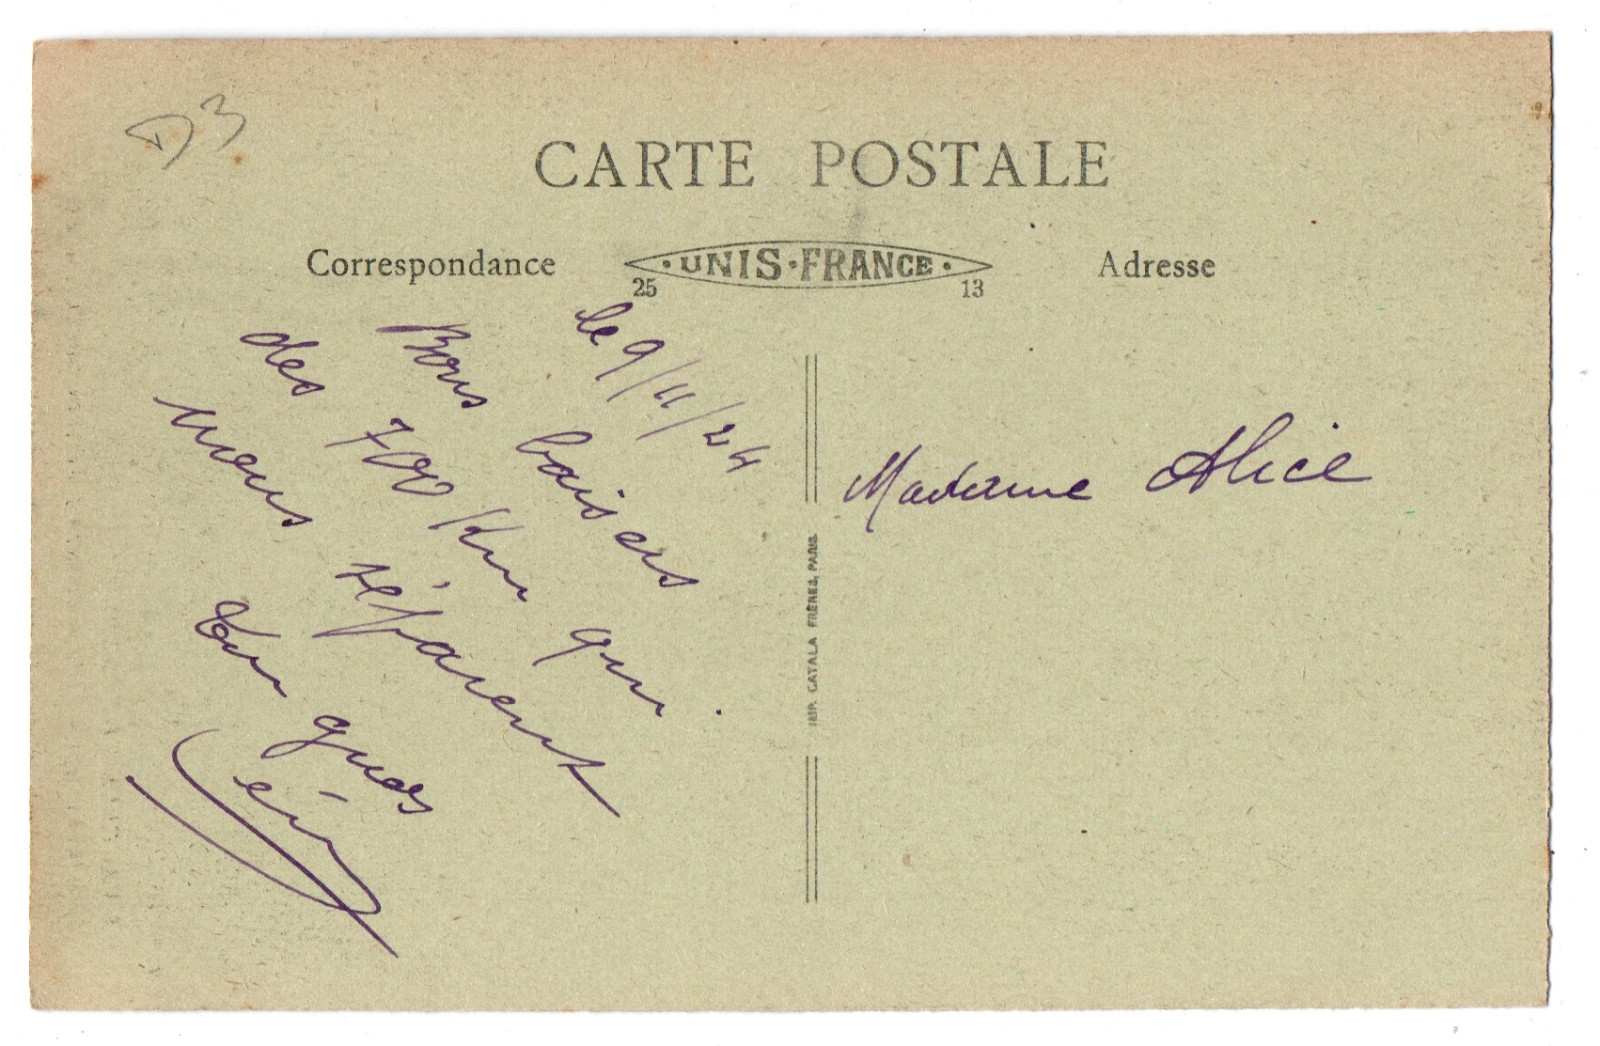 D3
CARTE POSTALE
Correspondance
·UNIS·FRANCE·
25 13
Adresse
le 9/11/24
Bons baisers
des 700 Km qui
nous séparent
Madame Alice
IMP. CATALA FRÈRES, PARIS